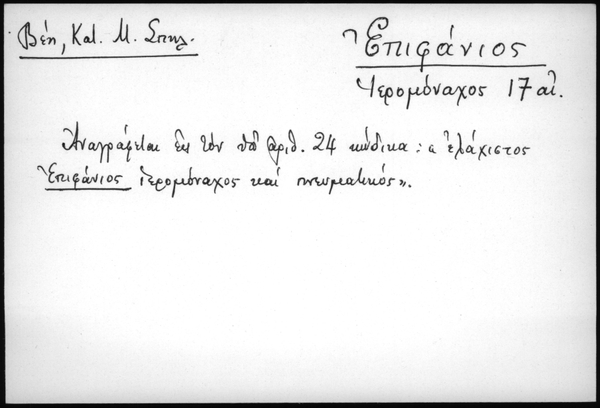 Βέη, Κατ. Μ. Σπηλ.
Ἐπιφάνιος
Ἱερομόναχος 17 αἰ.
Ἀναγράφεται εἰς τὸν ὑπ' ἀριθ. 24 κώδικα: « ἐλάχιστος
Ἐπιφάνιος ἱερομόναχος καὶ πνευματικός».